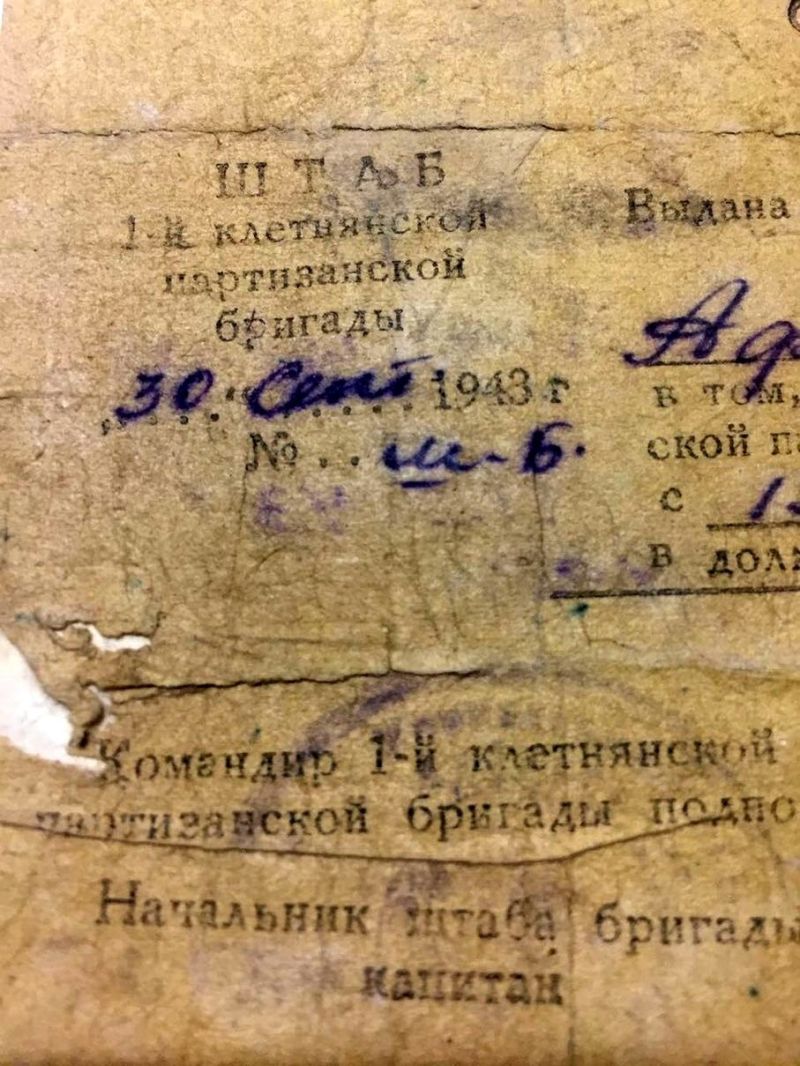 ШТАБ
1-й клетнянской
партизанской
бригады
30 Сент 1943 г
№ .. ш-Б.
Выдана
в том,
ской
с
в
Командир 1-й клетнянской
партизанской бригады
Начальник штаба бригады
капитан